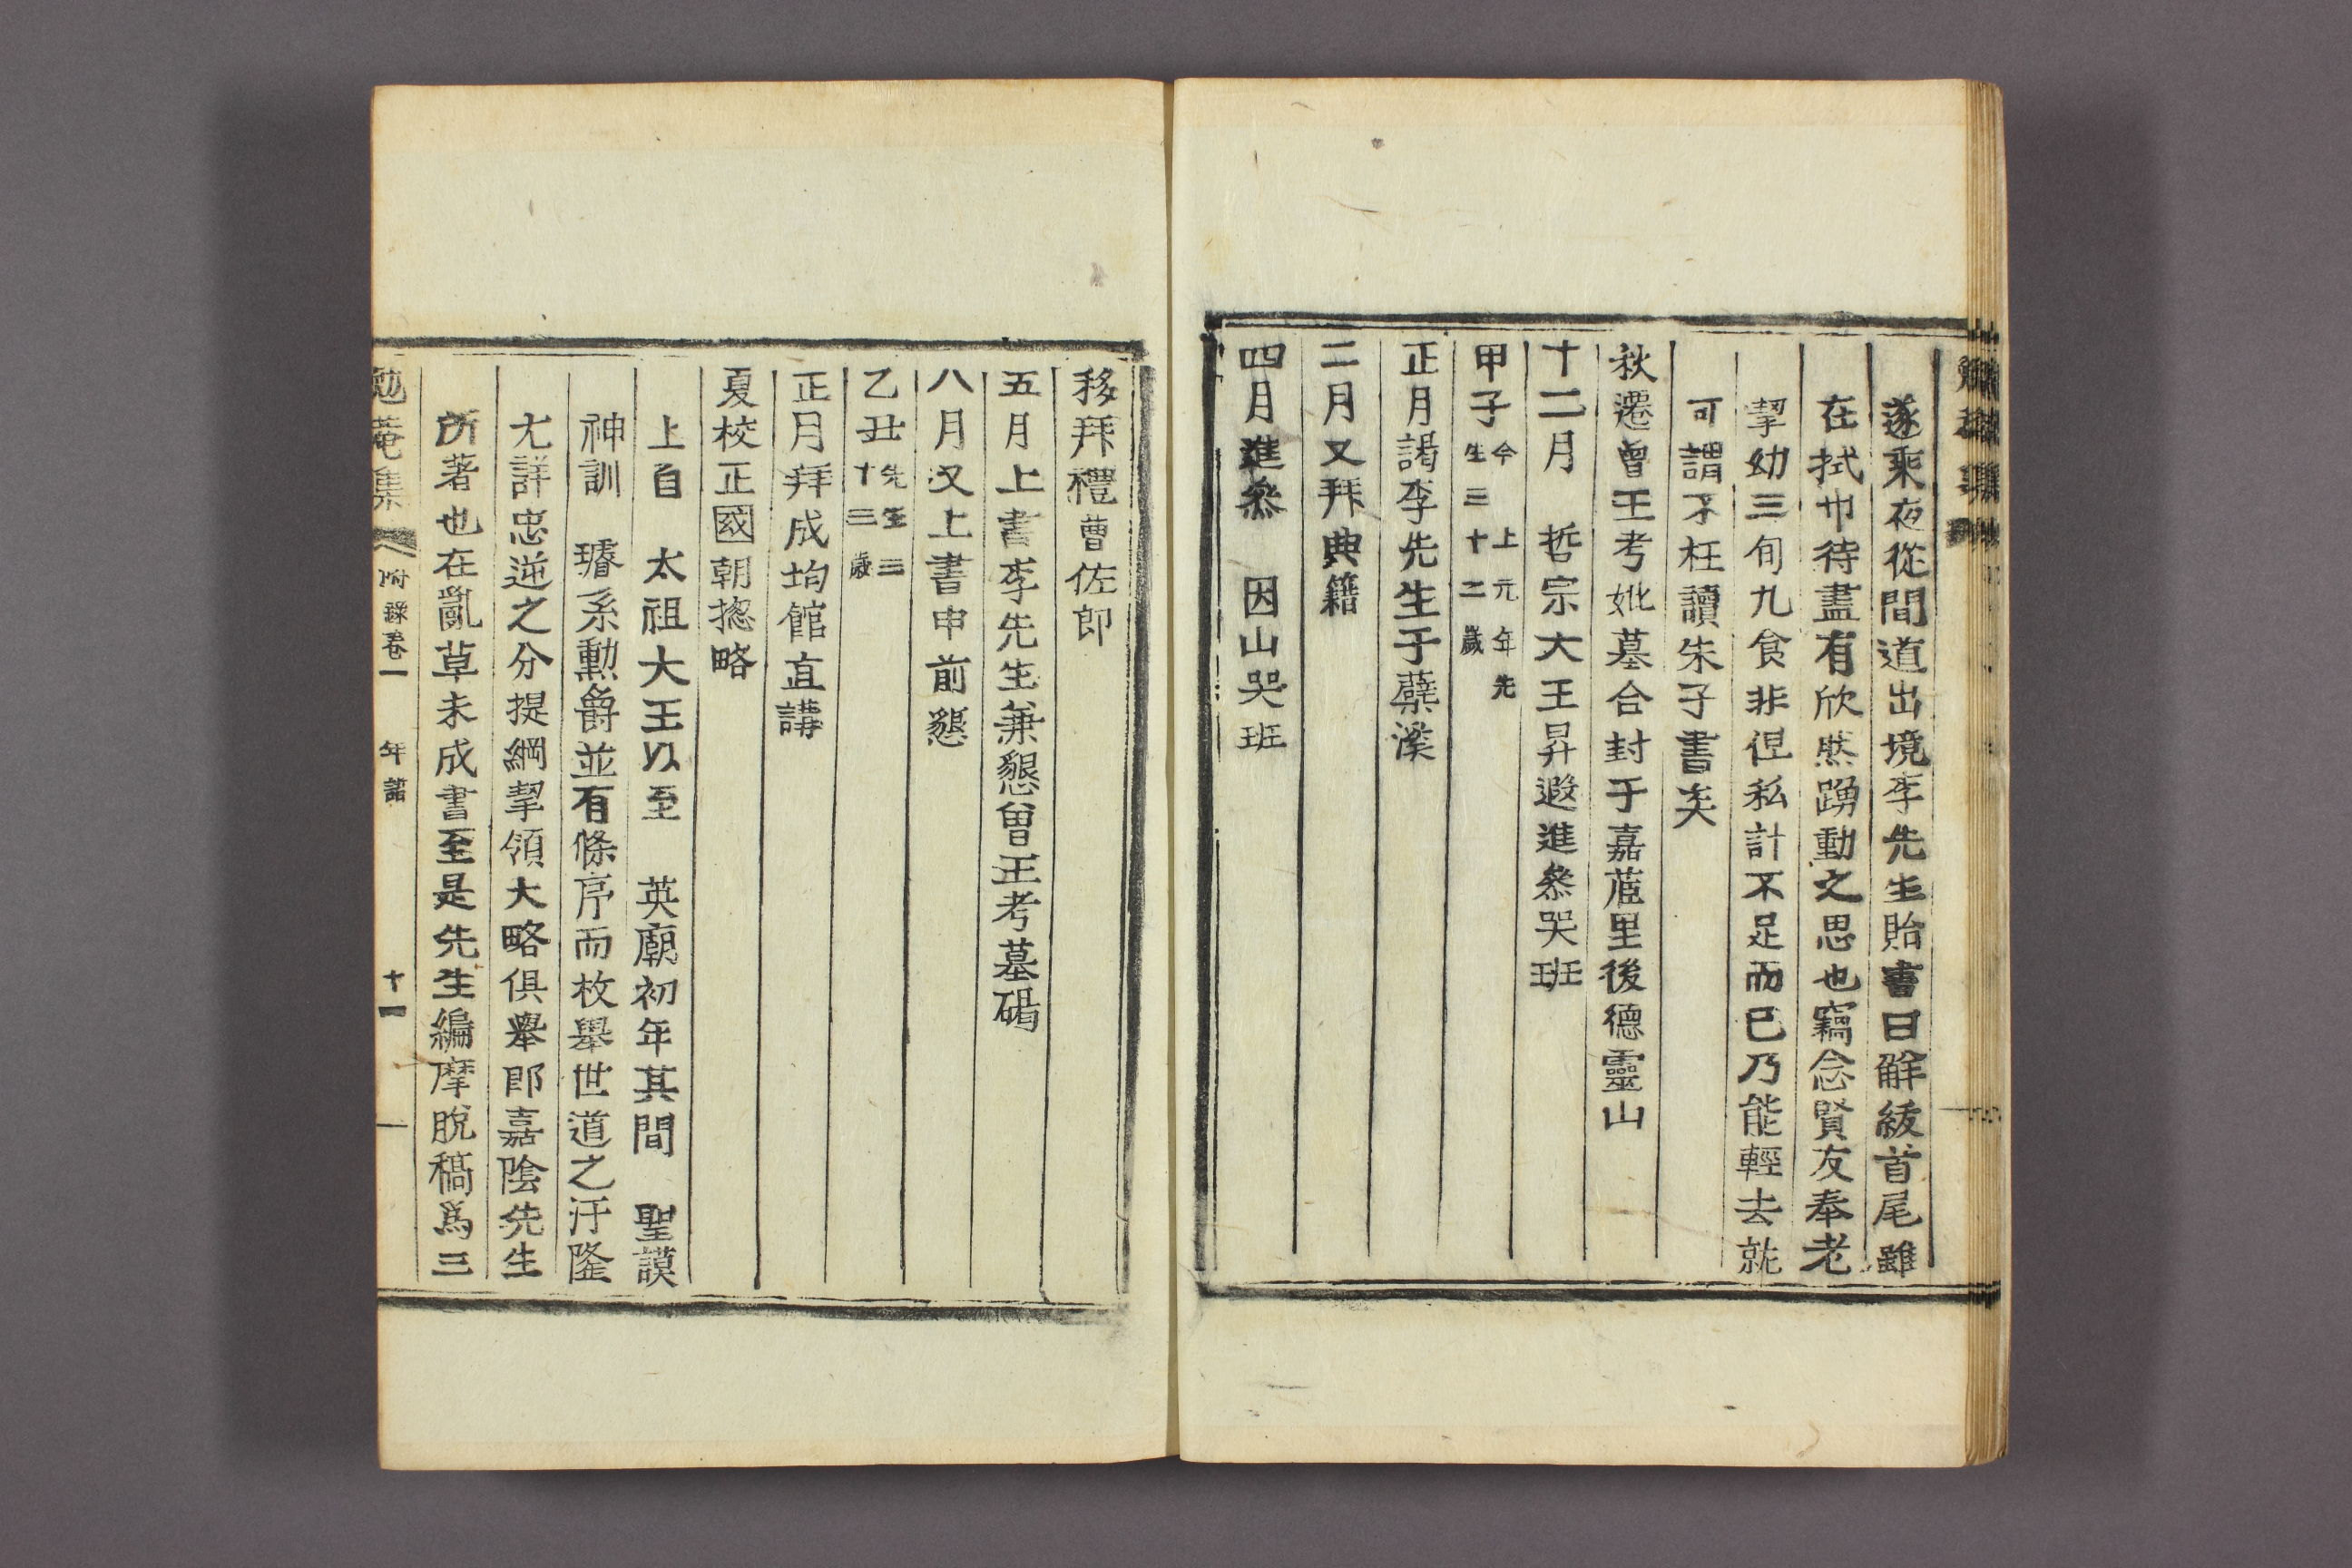 遂乘夜從間道出境李先生貽書曰解紱首尾雖
在拭巾待盡有欣然踴動之思也竊念賢友奉老
挈幼三旬九食非但私計不足而已乃能輕去就
可謂不枉讀朱子書矣
秋遷曾王考妣墓合封于嘉茝里後德靈山
十二月 哲宗大王昇遐進參哭班
甲子今 上元年先生三十二歲
正月謁李先生于蘗溪
二月又拜典籍
四月進參 因山哭班
移拜禮曹佐郎
五月上書李先生兼懇曾王考墓碣
八月又上書申前懇
乙丑先生三十三歲
正月拜成均館直講
夏校正國朝摠略
上自 太祖大王以至 英廟初年其間 聖謨
神訓 璿系勳爵並有條序而枚舉世道之汙隆
尤詳忠逆之分提綱挈領大略俱舉郎嘉陰先生
所著也在亂草未成書至是先生編摩脫稿爲三
勉菴集 附錄卷一 年譜 十一